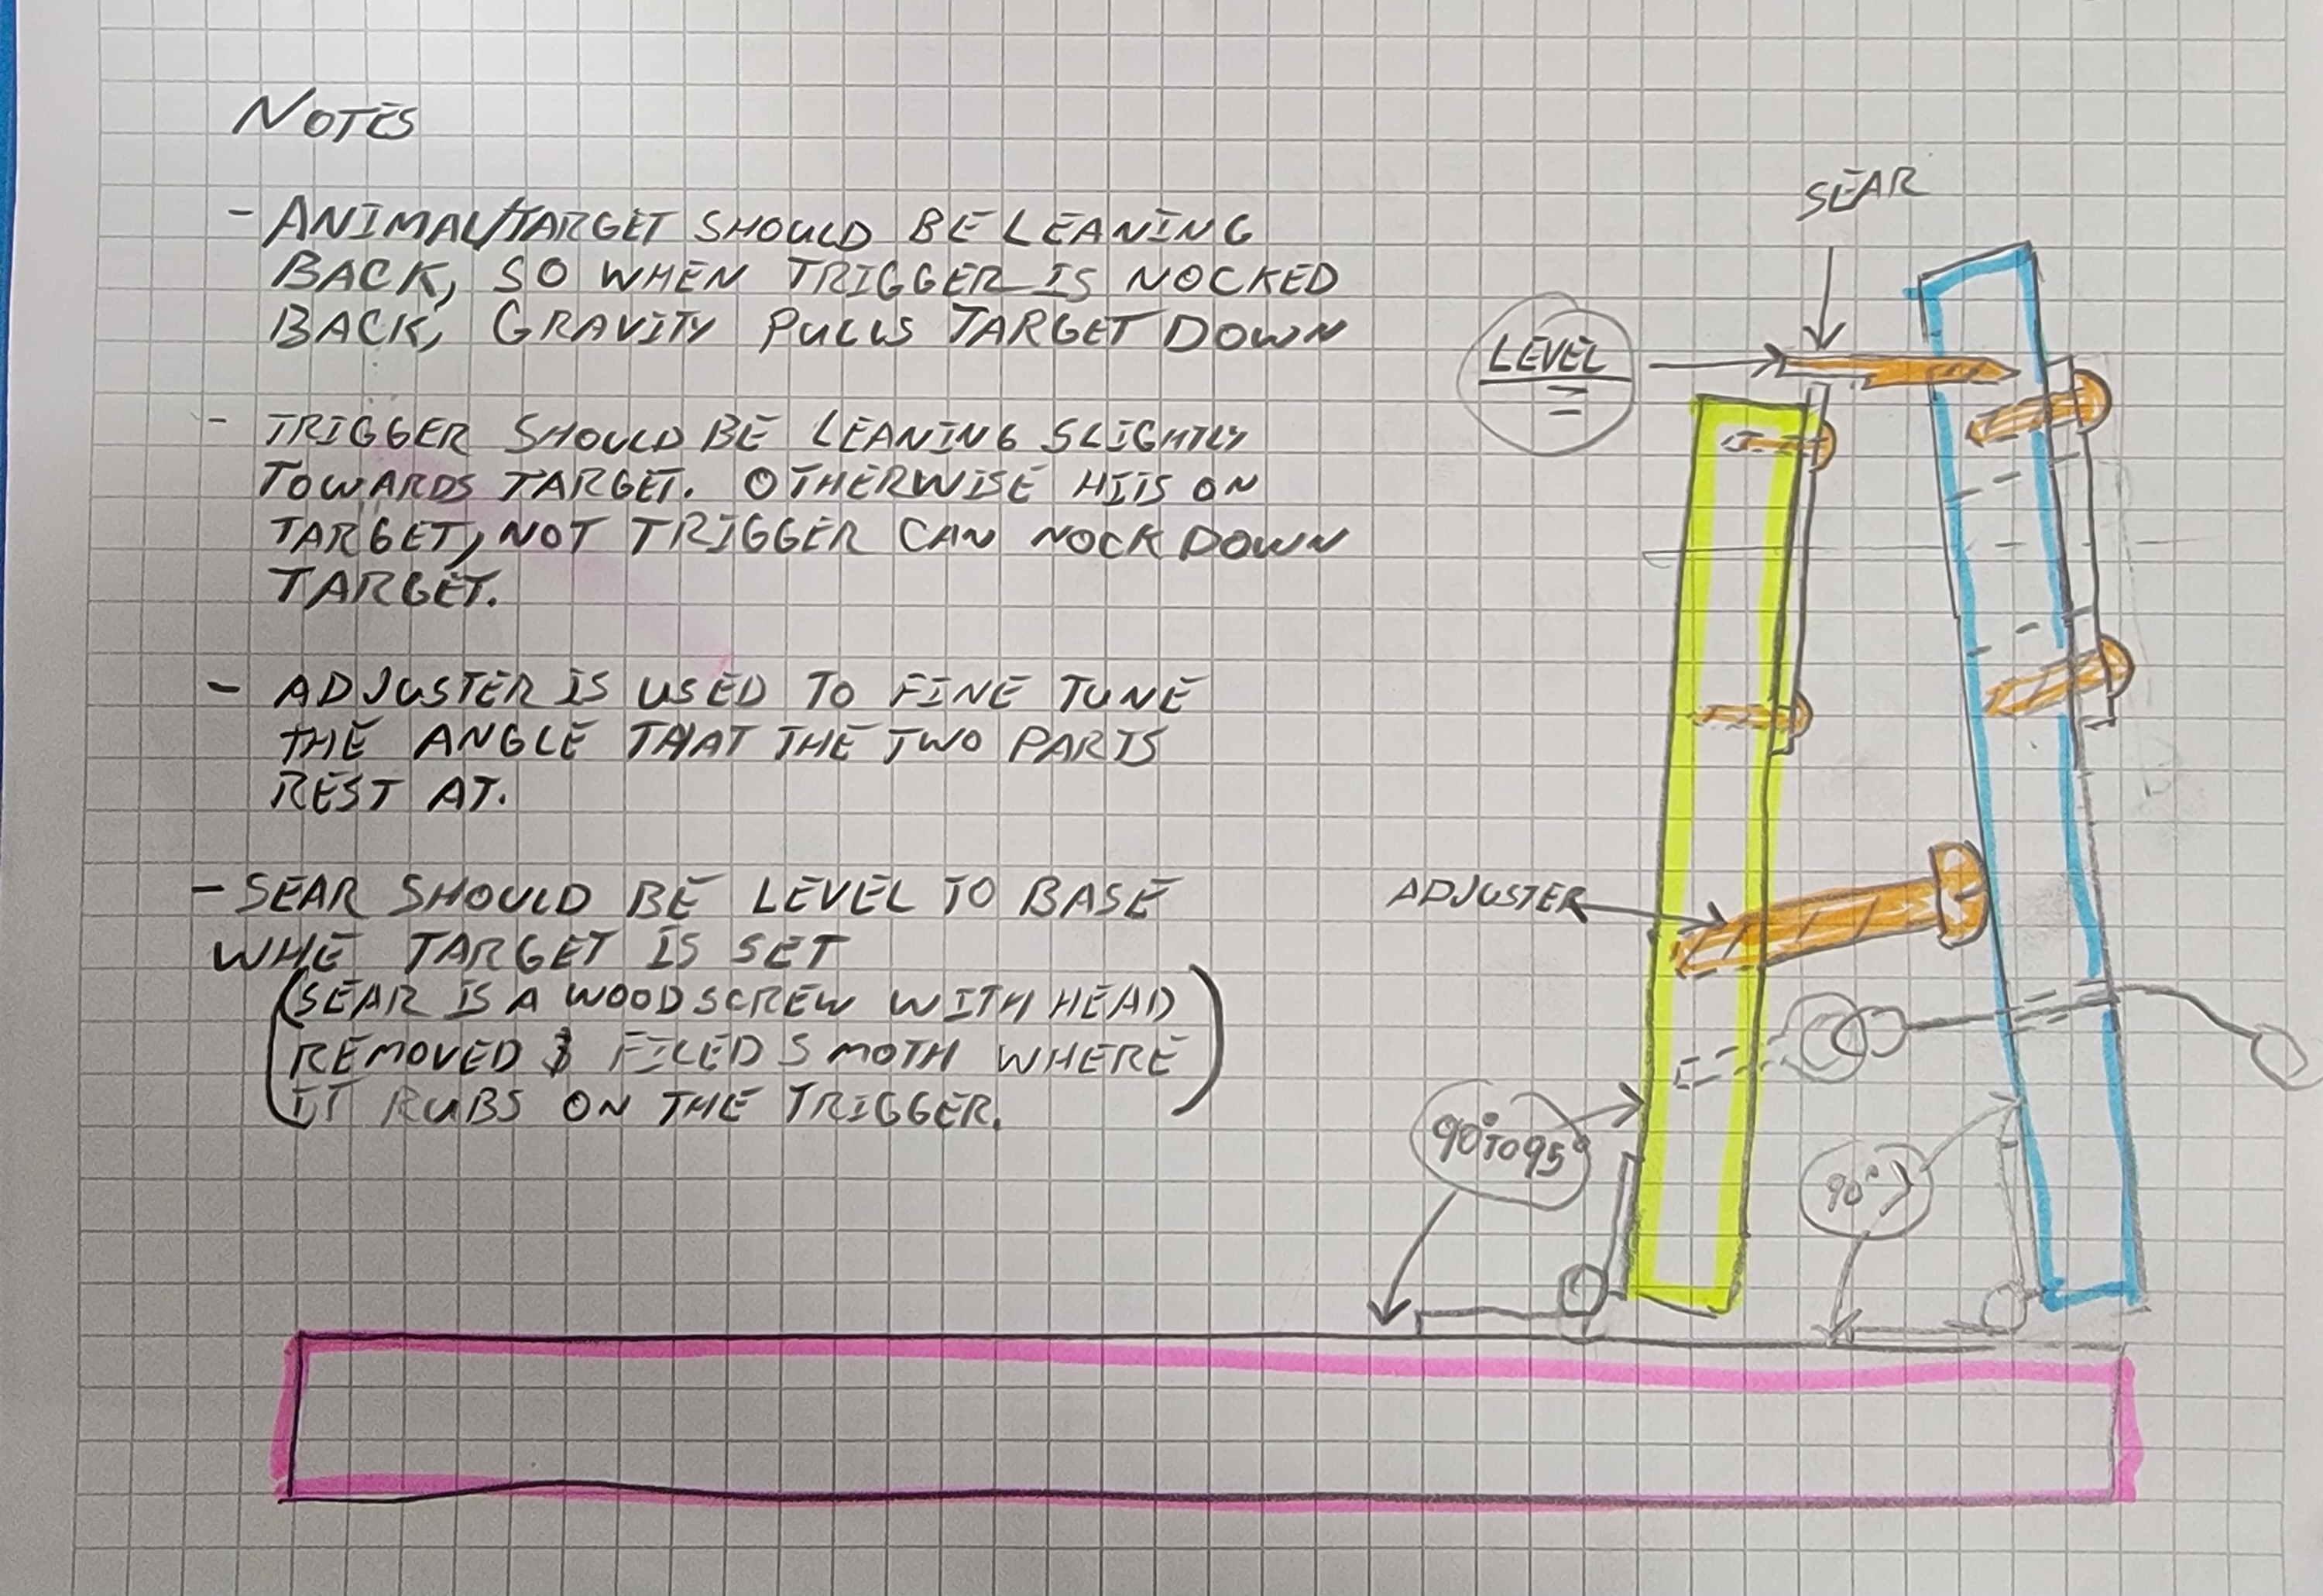 NOTES
- ANIMAL/TARGET SHOULD BE LEANING
BACK, SO WHEN TRIGGER IS NOCKED
BACK, GRAVITY PULLS TARGET DOWN
- TRIGGER SHOULD BE LEANING SLIGHTLY
TOWARDS TARGET. OTHERWISE HITS ON
TARGET, NOT TRIGGER CAN NOCK DOWN
TARGET.
- ADJUSTER IS USED TO FINE TUNE
THE ANGLE THAT THE TWO PARTS
REST AT.
- SEAR SHOULD BE LEVEL TO BASE
WHE TARGET IS SET
(SEAR IS A WOODSCREW WITH HEAD
REMOVED & FILED SMOTH WHERE
IT RUBS ON THE TRIGGER.)
SEAR
LEVEL
ADJUSTER
90° TO 95°
90°